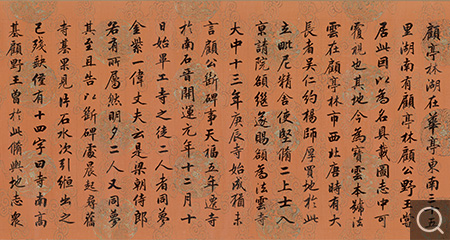 顧亭林湖在華亭東南三十五
里湖南有顧亭林顧公野王嘗
居此因以為名具載圖志中可
覆視也其地今為寶雲本號法
雲在顧亭林市西北唐時有大
長者吳仁約楊師厚買地於此
立毗尼精舍使堅脩二上士入
京請院額繼遂賜額為法雲寺
大中十三年庚辰寺始成猶未
言顧公斷碑事天福五年遷寺
於南石晉開運元年十二月十
日始畢工寺之徒二人者同夢
金紫一偉丈夫云是梁朝侍郎
若有所屬然明夕二人又同夢
其至且告以斷碑處晨起尋舊
寺基果見片石水次引繩出之
已殘缺僅有十四字曰寺南高
基顧野王曾於此脩輿地志眾